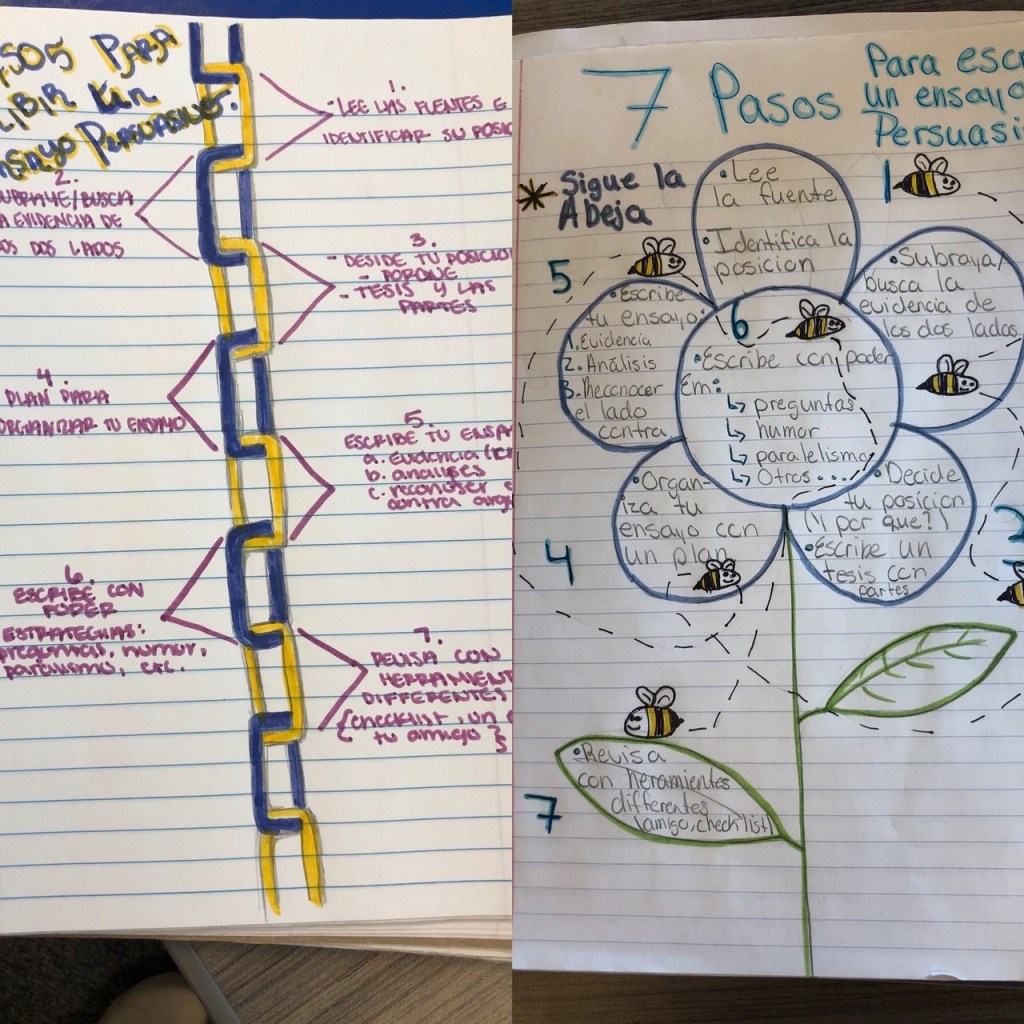 PARA
UN
ENSAYO PERSUASIVO.
1.
-LEE LAS FUENTES E
IDENTIFICAR SU
2.
SUBRAYE/BUSCA
LA EVIDENCIA DE
LOS DOS LADOS
3.
- DESIDE TU
- PORQUE
- TESIS Y LAS
PARTES
4.
PLAN PARA
ORGANIZAR TU ENSAYO
5.
ESCRIBE TU
a. evidencia
b. analises
c. reconoser
contra
6.
ESCRIBE CON
PODER
ESTRATEGHIAS:
humor,
etc.
7.
REVISA CON
DIFFERENTES
{checklist, un
tu amigo}
7 Pasos
Para
un ensayo
* Sigue la
Abeja
1
• Lee
la fuente
• Identifica la
posicion
• Subraya/
busca la
evidencia de
los dos lados
2
• Decide
tu posicion
(Y por que?)
• Escribe un
tesis con
partes
4
• Organ-
iza tu
ensayo con
un plan
5
• Escribe
tu ensayo:
1. Evidencia
2. Análisis
3. Reconocer
el lado
contra
6
• Escribe con poder
Em:
↳ preguntas
↳ humor
↳ paralelismo
↳ Otros...
7
• Revisa
con heramientes
differentes
(amigo, checklist)